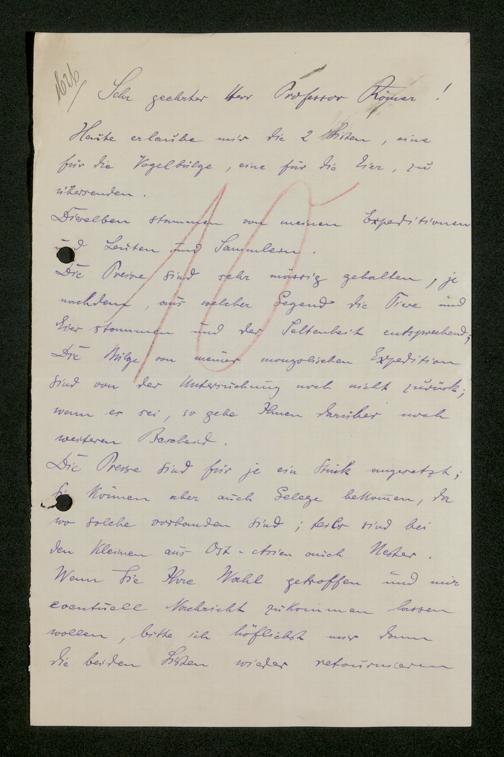 1626
Sehr geehrter Herr Professor Römer!
Heute erlaube mir die 2 Listen, eine
für die Vogelbälge, eine für die Eier, zu
übersenden.
Dieselben stammen von meinen Expeditionen
und Leuten und Sammlern.
Die Preise sind sehr mässig gehalten, je
nachdem, aus welcher Gegend die Tiere und
Eier stammen und der Seltenheit entsprechend;
Die Bälge von meiner mongolischen Expedition
sind von der Untersuchung noch nicht zurück;
wenn er sei, so gebe Ihnen darüber noch
weiteren Bescheid.
Die Preise sind für je ein Stück angesetzt;
Sie können aber auch Gelege bekommen, da
wo solche vorhanden sind; teils sind bei
den Kleinen aus Ost-Asien auch Nester.
Wenn Sie Ihre Wahl getroffen und mir
eventuell Nachricht zukommen lassen
wollen, bitte ich höflichst mir dann
die beiden Listen wieder retournieren
10